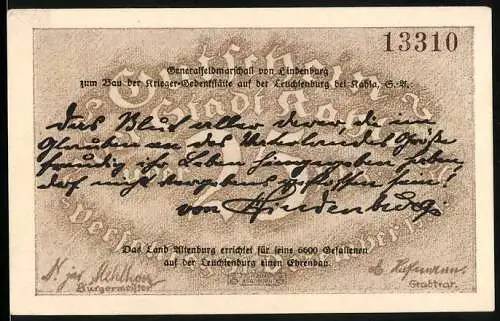 13310
Gutschein
Generalfeldmarschall von Hindenburg
zum Bau der Krieger-Gedenkstätte auf der Leuchtenburg bei Kahla, S.-A.
Stadt Kahla
Das Blut aller derer, die im
Glauben an des Vaterlandes Größe
freudig ihr Leben hingegeben haben,
darf nicht vergebens geflossen sein!
von Hindenburg
Das Land Altenburg errichtet für seine 6600 Gefallenen
auf der Leuchtenburg einen Ehrenbau.
Bürgermeister
Stadtrat.